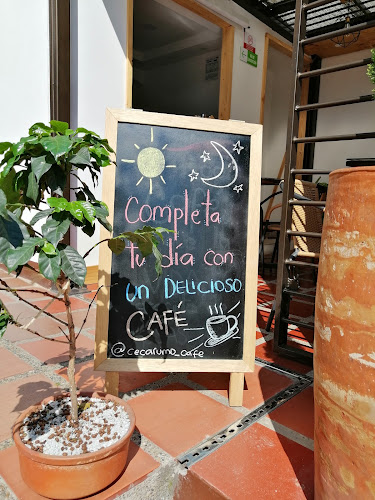 Completa
tu día con
un DELICIOSO
CAFÉ